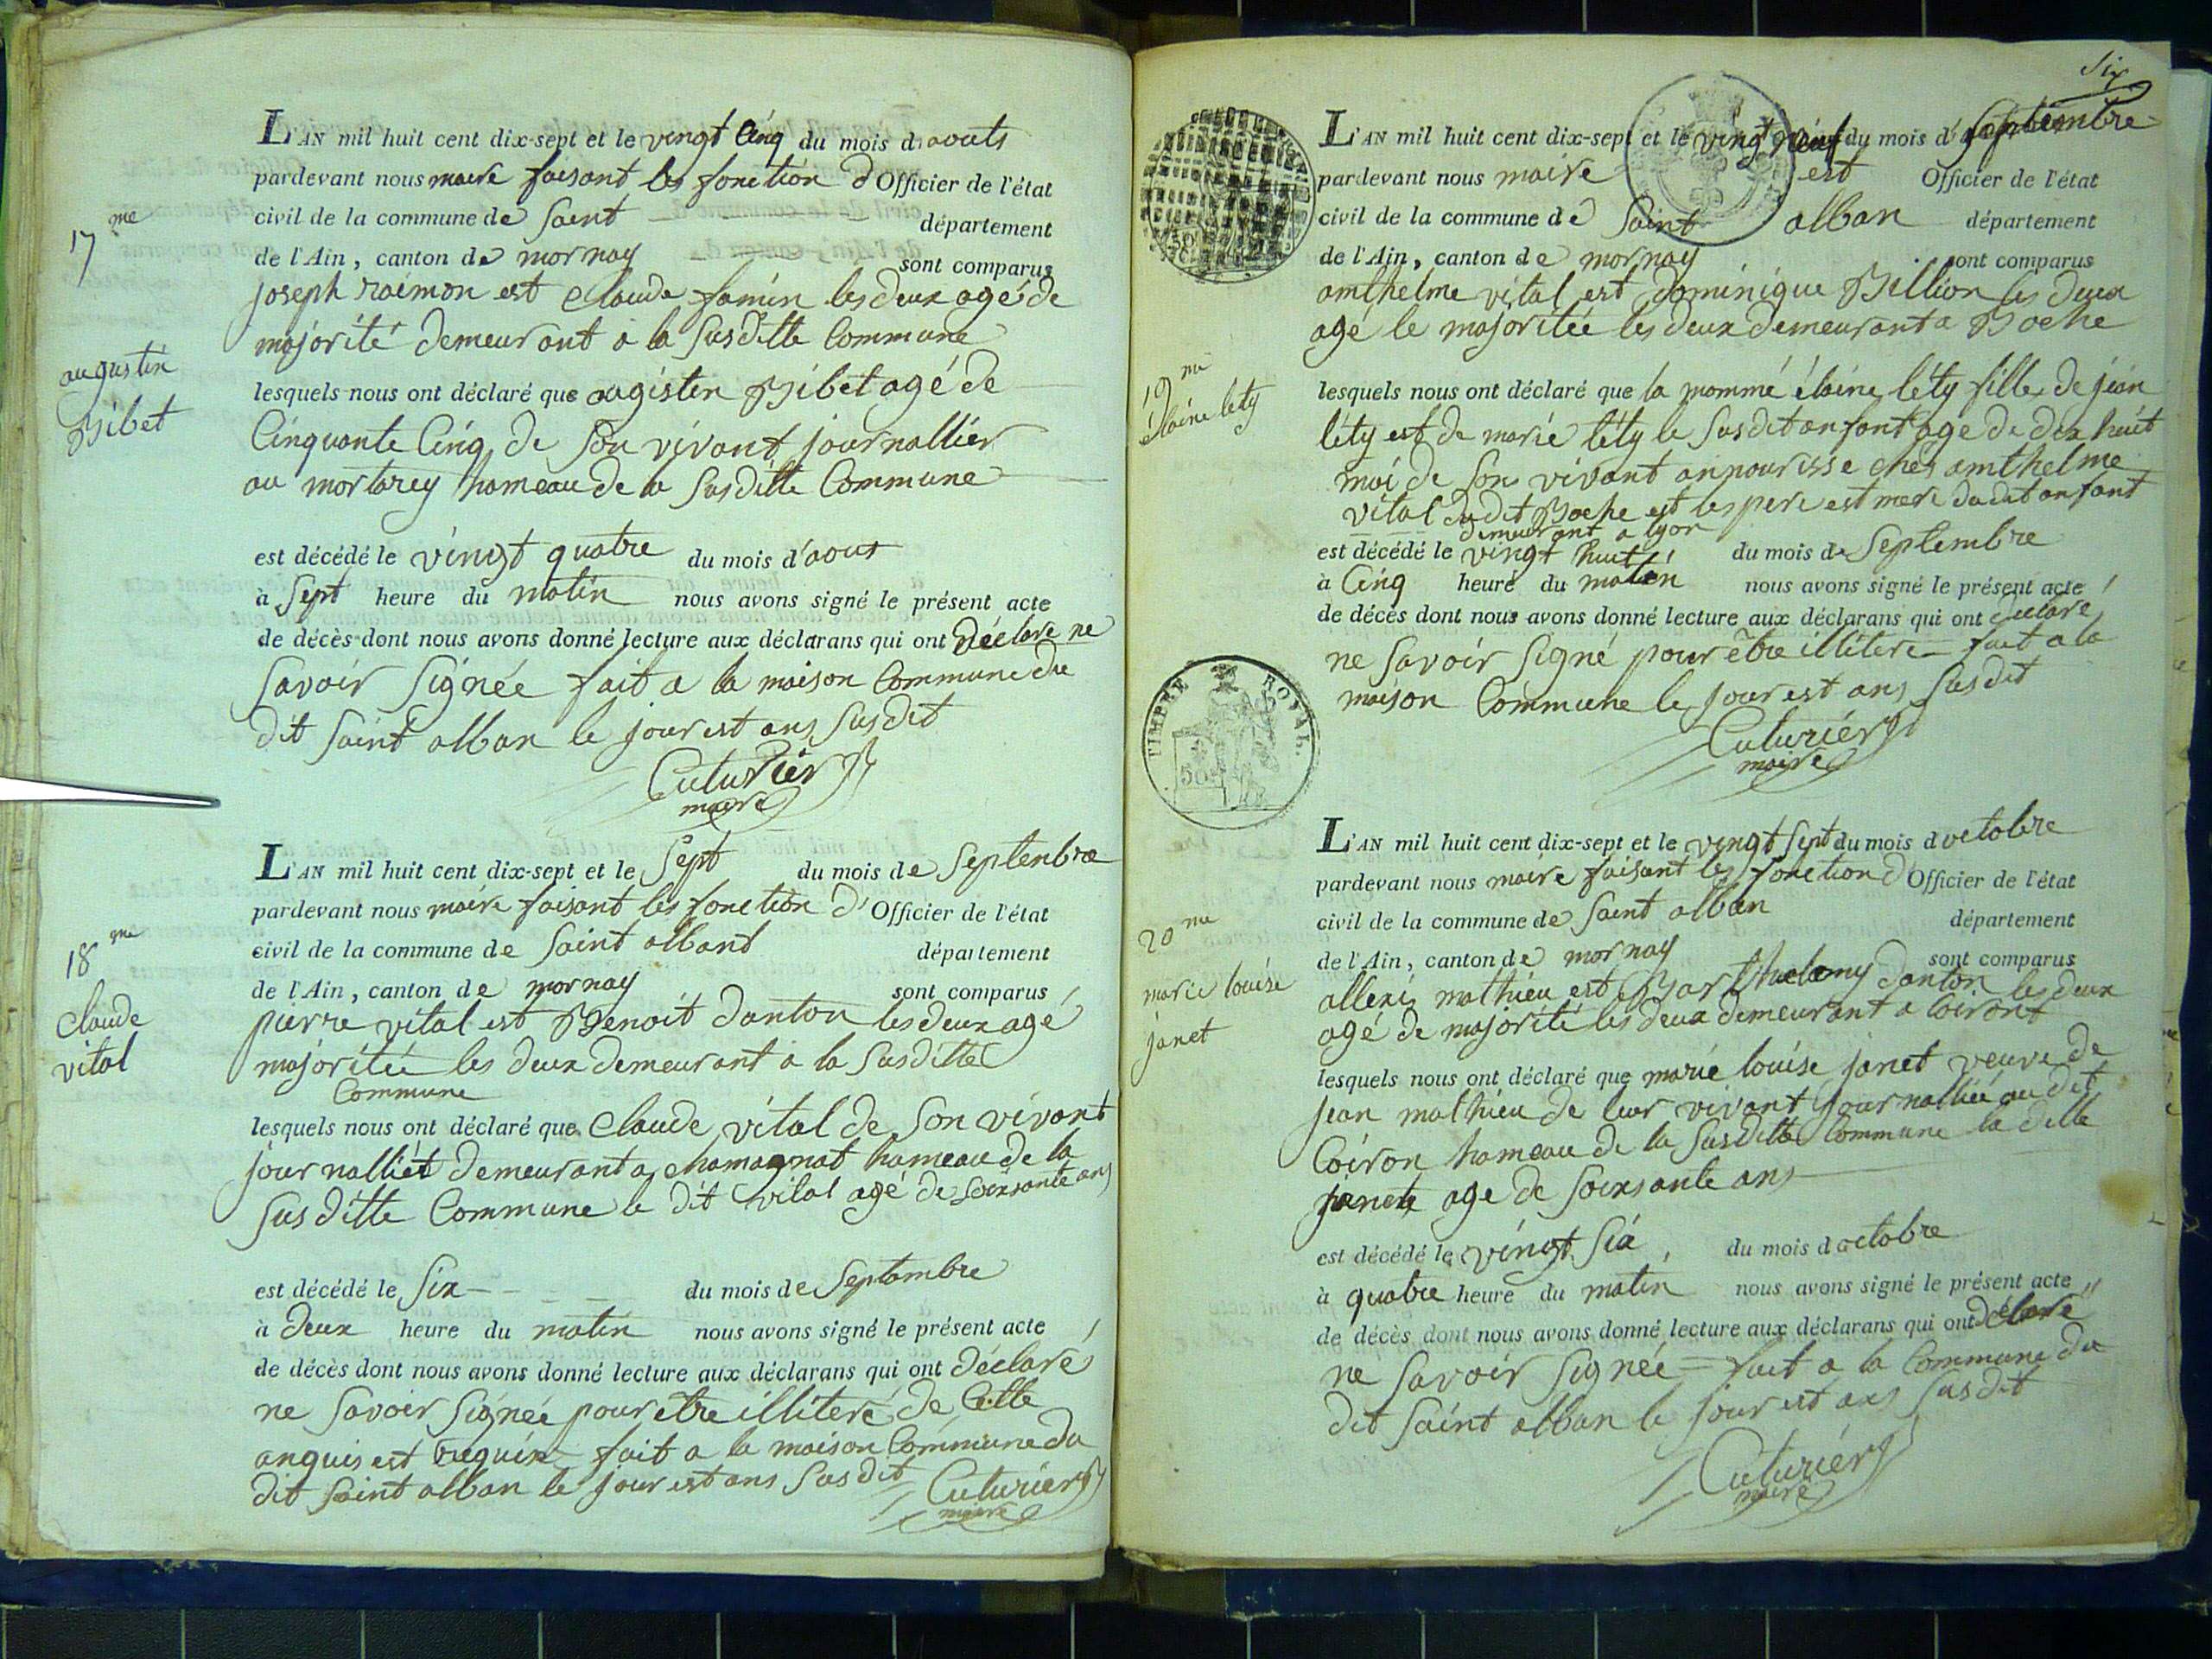 L'AN mil huit cent dix-sept et le vingt Cinq du mois d'aouts
pardevant nous maire faisant les fonction d'Officier de l'état
civil de la commune de Saint département
de l'Ain, canton de mornay sont comparus
17 me
joseph raimon est Claude famin les deux agé de
majorité demeurant a la Susditte Commune
augustin
Bibet
lesquels nous ont déclaré que augisten Bibet agé de
Cinquante Cinq de Son vivant journallier
au mortarey hameau de la Susditte Commune
est décédé le vingt quatre du mois d'aout
à Sept heure du matin nous avons signé le présent acte
de décès dont nous avons donné lecture aux déclarans qui ont Déclare ne
Savoir Signée fait a la maison Commune du
dit Saint alban le jour est ans Susdit
Cuturier
maire
L'AN mil huit cent dix-sept et le Sept du mois de Septenbre
pardevant nous maire faisant les fonction d'Officier de l'état
civil de la commune de Saint albant département
de l'Ain, canton de mornay sont comparus
18 me
Claude
vital
pierre vital est Benoit danton les deux agé
majoritée les deux demeurant a la Susditte
Commune
lesquels nous ont déclaré que Claude vital de Son vivant
journalliet demeurant a chamagnat hameau de la
Susditte Commune le dit vital agé de Soixsante ans
est décédé le Six du mois de Septambre
à Deux heure du matin nous avons signé le présent acte
de décès dont nous avons donné lecture aux déclarans qui ont déclaré
ne Savoir Signée pour etre illiteré de Cette
anquis est Requis fait a la maison Commune du
dit Saint alban le jour est ans Susdit Cuturier
maire
Six
L'AN mil huit cent dix-sept et le vingt neuf du mois d' Septembre
pardevant nous maire est Officier de l'état
civil de la commune de Saint alban département
de l'Ain, canton de mornay sont comparus
amthelme vital est dominique Billion les deux
agé le majoritée les deux demeurant a Boche
19 me
élaine lety
lesquels nous ont déclaré que la nommé élaine léty fille de jean
léty est de marie léty le Susdit anfant age de dix huit
moi de Son vivant annourisse ches amthelme
vital du dit Boche est les pere est mere dudit anfant
demeurant a lyon
est décédé le vingt huit du mois de Septembre
à Cinq heure du matin nous avons signé le présent acte
de décès dont nous avons donné lecture aux déclarans qui ont déclaré
ne Savoir Signé pour être illitere fait a la
maison Commune le jour est ans Susdit
Cuturier
maire
TIMBRE ROYAL
50
L'AN mil huit cent dix-sept et le vingt Sept du mois d octobre
pardevant nous maire faisant les fonction d'Officier de l'état
civil de la commune de Saint alban département
de l'Ain, canton de mornay sont comparus
20 me
marie louise
janet
allexi mathieu est Barthelemy danton les deux
agé de majorité les deux demeurant a Coiront
lesquels nous ont déclaré que marie louise janet veuve de
jean mathieu de leur vivant journallié au dit
Coiron hameau de la Susditte Commune la ditte
janete age de Soixsante ans
est décédé le vingt Six du mois d octobre
à quatre heure du matin nous avons signé le présent acte
de décès dont nous avons donné lecture aux déclarans qui ont déclaré
ne Savoir Signée fait a la Commune du
dit Saint alban le jour est ans Susdit
Cuturier
maire